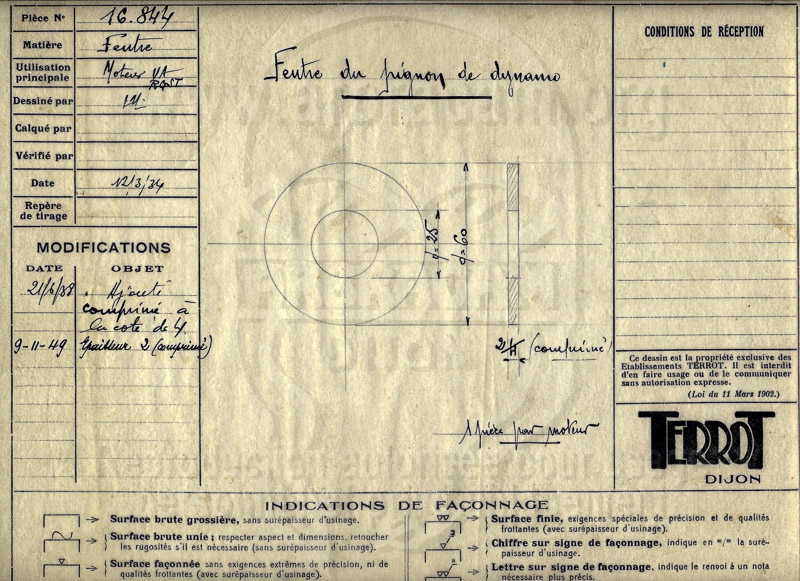 Pièce N° 16.844
Matière Feutre
Utilisation principale Moteur VA
Dessiné par
Calqué par
Vérifié par
Date 12/3/34
Repère de tirage
MODIFICATIONS
DATE OBJET
21/6/38 Ajouté
comprimé à
la cote de 4
9-11-49 Epaisseur 2 (comprimé)
Feutre du pignon de dynamo
ϕ=25
ϕ=60
2 (comprimé)
1 pièce par moteur
CONDITIONS DE RÉCEPTION
Ce dessin est la propriété exclusive des
Etablissements TERROT. Il est interdit
d'en faire usage ou de le communiquer
sans autorisation expresse.
(Loi du 11 Mars 1902.)
TERROT
DIJON
INDICATIONS DE FAÇONNAGE
Surface brute grossière, sans surépaisseur d'usinage.
Surface brute unie; respecter aspect et dimensions, retoucher
les rugosités s'il est nécessaire (sans surépaisseur d'usinage).
Surface façonnée sans exigences extrêmes de précision, ni de
qualités frottantes (avec surépaisseur d'usinage).
Surface finie, exigences spéciales de précision et de qualités
frottantes (avec surépaisseur d'usinage).
Chiffre sur signe de façonnage, indique en m/m la suré-
paisseur d'usinage.
Lettre sur signe de façonnage, indique le renvoi à un nota
nécessaire plus précis.